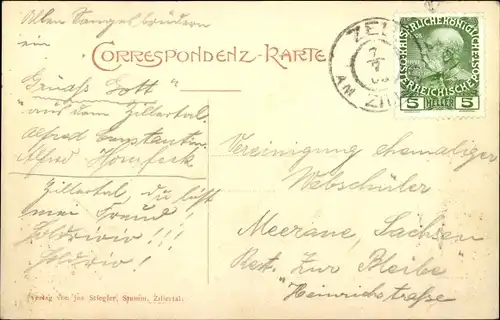 Allen Sangesbrüdern
ein
CORRESPONDENZ-KARTE
„Grüaß Gott"
aus dem Zillertal.
Alfred Constantin
Alfred
Zillertal, du bist
mei Freud!
Holdririo!!!
Holdrio!
Verlag von Jos Stiegler, Stumm, Zillertal.
ZELL
AM
ZIL
KAISERLICHEKÖNIGLICHE
OESTERREICHISCHE
5 HELLER 5
Vereinigung ehemaliger
Webschüler
Meerane, Sachsen
Rest. Zur Bleibe
Heinrichstraße